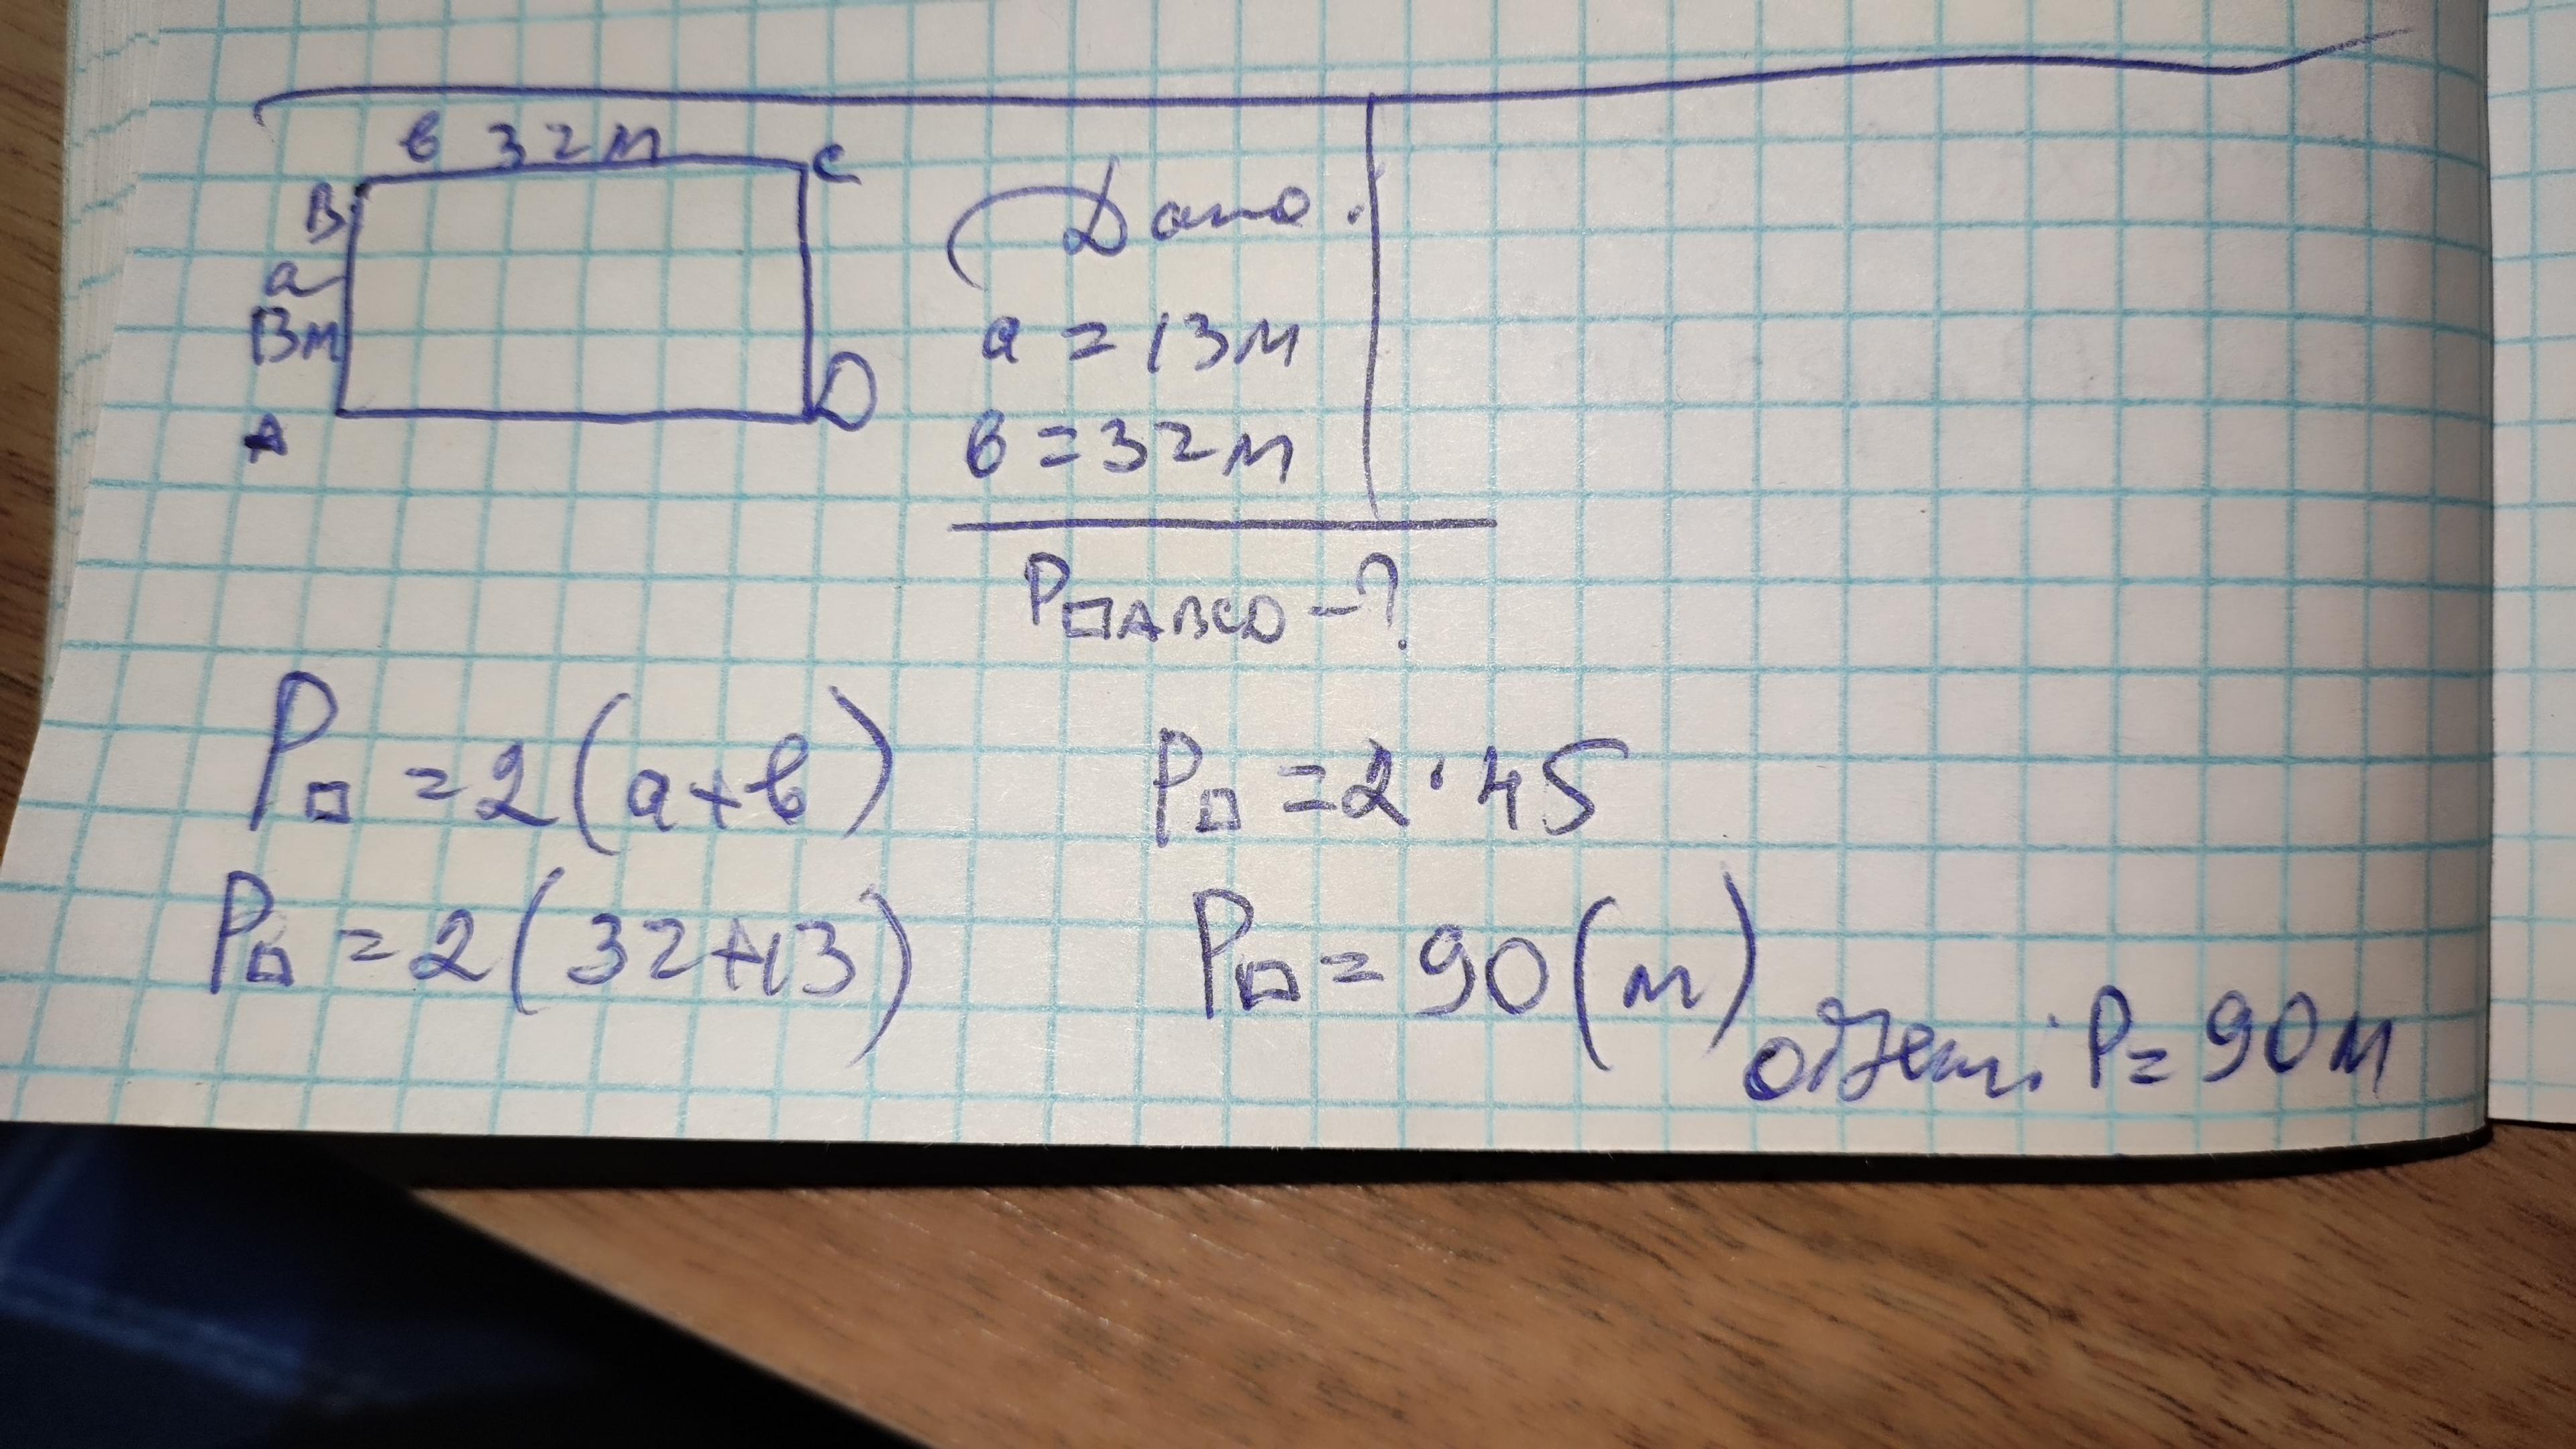 в 32м
B
C
a
13м
A
D
Дано:
a = 13м
в = 32м
P□ABCD - ?
P□ = 2(a+в)
P□ = 2(32+13)
P□ = 2·45
P□ = 90(м)
ответ: P = 90м